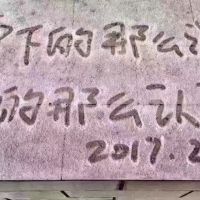 下的那么
的那么认
2017.2